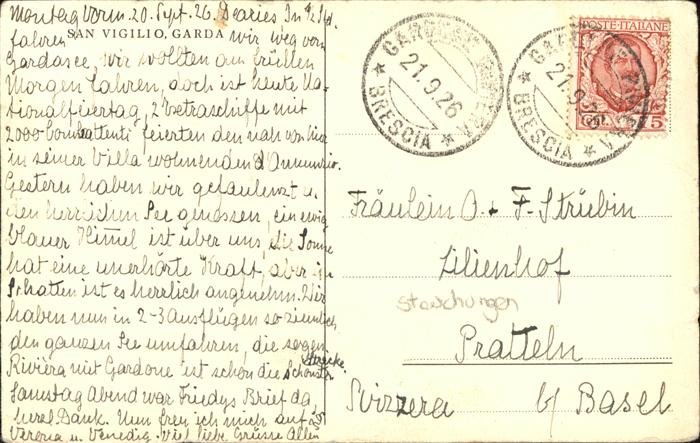 Montag Vorm. 20. Sept. 26. Dearies In 1/2 Std.
SAN VIGILIO, GARDA
fahren wir weg vom
Gardasee, wir wollten am frühen
Morgen fahren, doch ist heute Na-
tionalfeiertag, 2 Extraschiffe mit
2000 Combattenti feierten den nah von hier
in seiner Villa wohnenden d'Annunzio.
Gestern haben wir gefaulenzt u.
den herrlichen See genossen, ein ewig
blauer Himel ist über uns, die Sonne
hat eine unerhörte Kraft, aber im
Schatten ist es herrlich angenehm. Wir
haben nun in 2-3 Ausflügen so ziemlich
den ganzen See umfahren, die sogen.
Riviera mit Gardone ist schon die schönste
Strecke.
Samstag Abend war Friedys Brief da,
herzl. Dank. Nun freu ich mich auf
Verona u. Venedig. Viel liebe Grüsse Allen
GARDONE RIVIERA
21.9.26
* BRESCIA *
GARDONE RIVIERA
21.9.26
* BRESCIA *
POSTE ITALIANE
75
Fräulein O. & F. Strübin
Lilienhof
Stauchungen
Pratteln
Svizzera b/ Basel